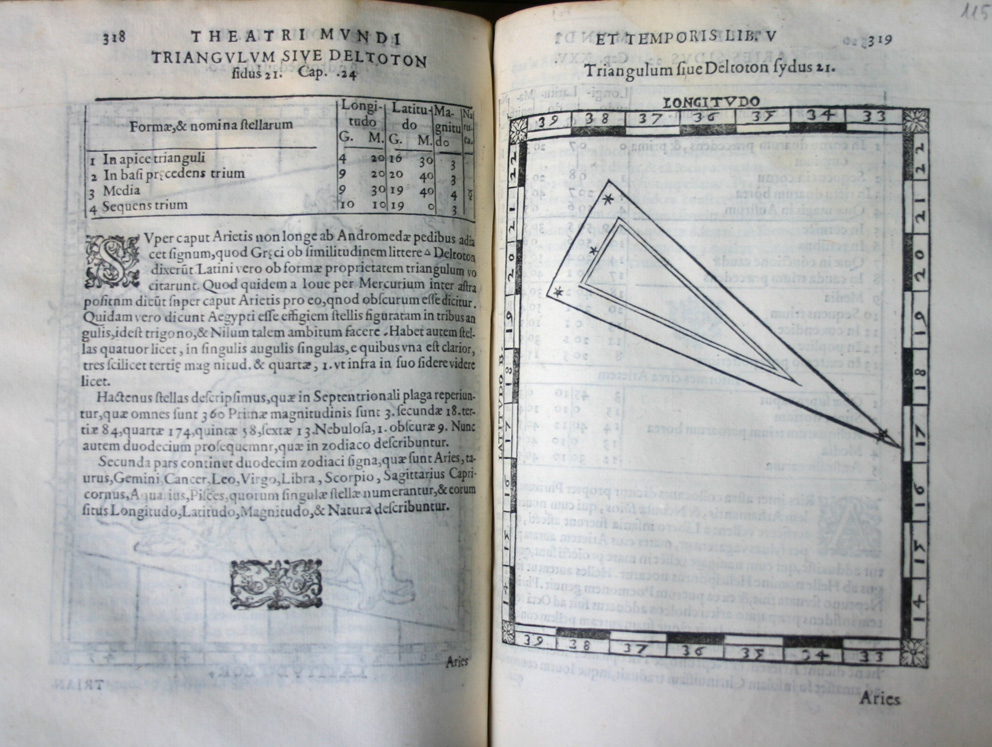 318 THEATRI MVNDI
TRIANGVLVM SIVE DELTOTON
ſidus 21. Cap. .24
Longi- Latitu- Ma-
Formæ,& nomina ſtellarum tudo do gnitu
G. M. G. M. do
1 In apice trianguli 4 20 16 30 3
2 In baſi pręcedens trium 9 20 20 40 3
3 Media 9 30 19 40 4
4 Sequens trium 10 10 19 0 3
SVper caput Arietis non longe ab Andromedæ pedibus adia
cet ſignum,quod Gręci ob ſimilitudinem littere Δ Deltoton
dixerūt Latini vero ob formæ proprietatem triangulum vo
citarunt. Quod quidem a Ioue per Mercurium inter aſtra
poſitnm dicūt ſnper caput Arietis pro eo,qnod obſcurum eſſe dicitur.
Quidam vero dicunt Aegypti eſſe effigiem ſtellis figuratam in tribus an
gulis,ideſt trigono,& Nilum talem ambitum facere .Habet autem ſtel-
las quatuor licet, in ſingulis augulis ſingulas,e quibus vna eſt clarior,
tres ſcilicet tertię mag nitud. & quartæ, 1.vt infra in ſuo ſidere videre
licet.
Hactenus ſtellas deſcripſimus,quæ in Septentrionali plaga reperiun-
tur,quæ omnes ſunt 360 Primæ magnitudinis ſunt 3.ſecundæ 18.ter-
tiæ 84,quartæ 174,quintæ 58,ſextæ 13.Nebuloſa,1.obſcuræ 9. Nunc
autem duodecium proſequemnr,quæ in zodiaco deſcribuntur.
Secunda pars continet duodecim zodiaci ſigna,quæ ſunt Aries,ta-
urus,Gemini Cancer,Leo,Virgo,Libra, Scorpio, Sagittarius Capri-
cornus,Aquarius,Piſces,quorum ſingulæ ſtellæ numerantur,& eorum
ſitus Longitudo,Latitudo,Magnitudo,& Natura deſcribuntur.
Aries
115
ET TEMPORIS LIB. V 319
Triangulum ſiue Deltoton ſydus 21.
LONGITVDO
39 38 37 36 35 34 33
22 22
21 21
20 20
19 19
18 18
17 17
16 16
15 15
14 14
LATITVDO B.
39 38 37 36 35 34 33
Aries